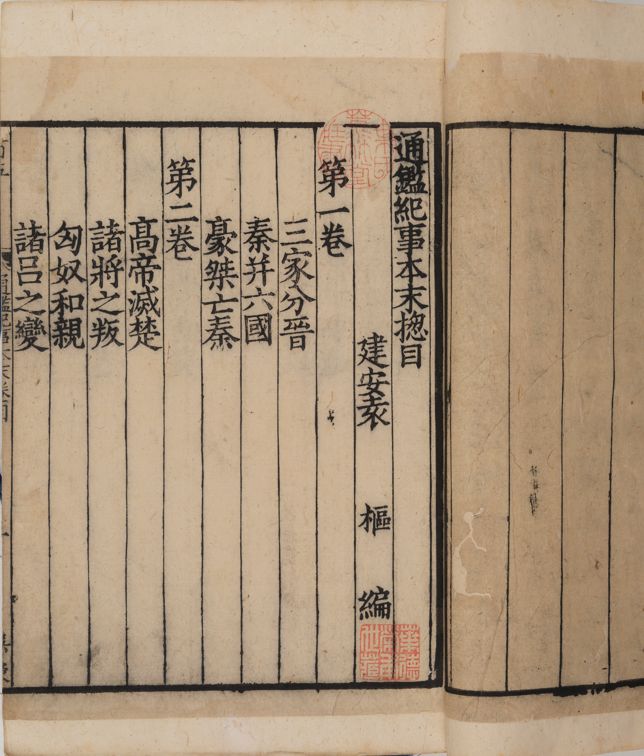 通鑑紀事本末揔目
建安袁 樞 編
第一卷
三家分晉
秦并六國
豪桀亡秦
第二卷
高帝滅楚
諸將之叛
匈奴和親
諸吕之變
葉德榮甫世藏